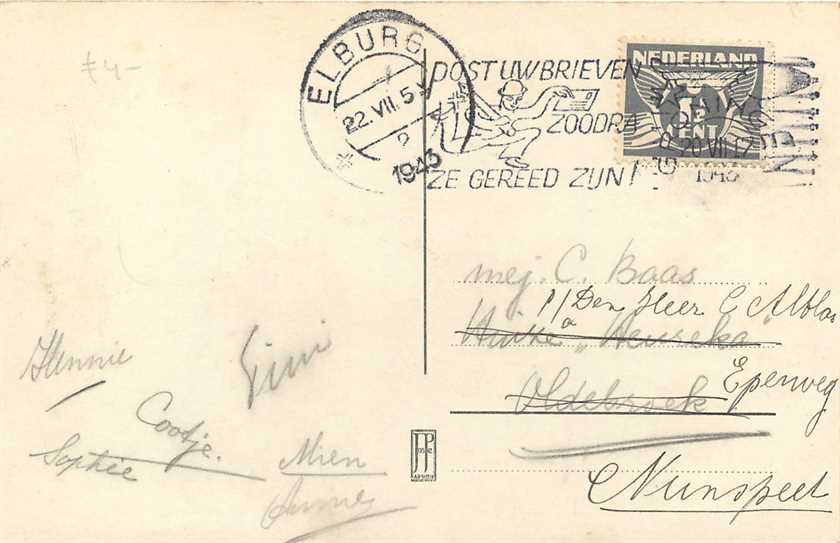 f4-
ELBURG
22.VII.5
2
1943
POST UW BRIEVEN
ZOODRA
ZE GEREED ZIJN!
NEDERLAND
5
CENT
20.VII.17
1943
mej. C. Baas
p/a Den Heer C Alblas
Huize "Heureka"
Eperweg
Oldebroek
Nunspeet
Hennie
Gini
Cootje.
Sophie
Mien
Annie
JP